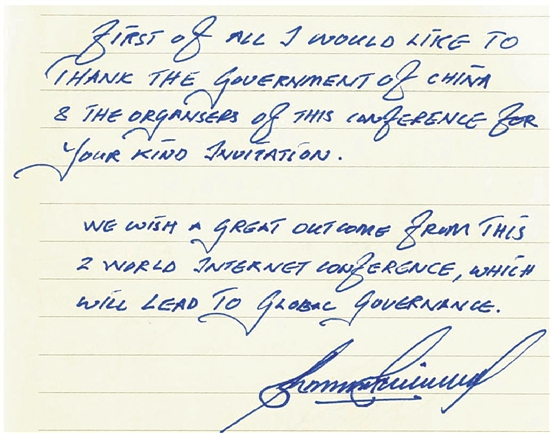 FIRST OF ALL I WOULD LIKE TO
THANK THE GOVERNMENT OF CHINA
& THE ORGANSERS OF THIS CONFERENCE FOR
YOUR KIND INVITATION.
WE WISH A GREAT OUTCOME FROM THIS
2 WORLD INTERNET CONFERENCE, WHICH
WILL LEAD TO GLOBAL GOVERNANCE.